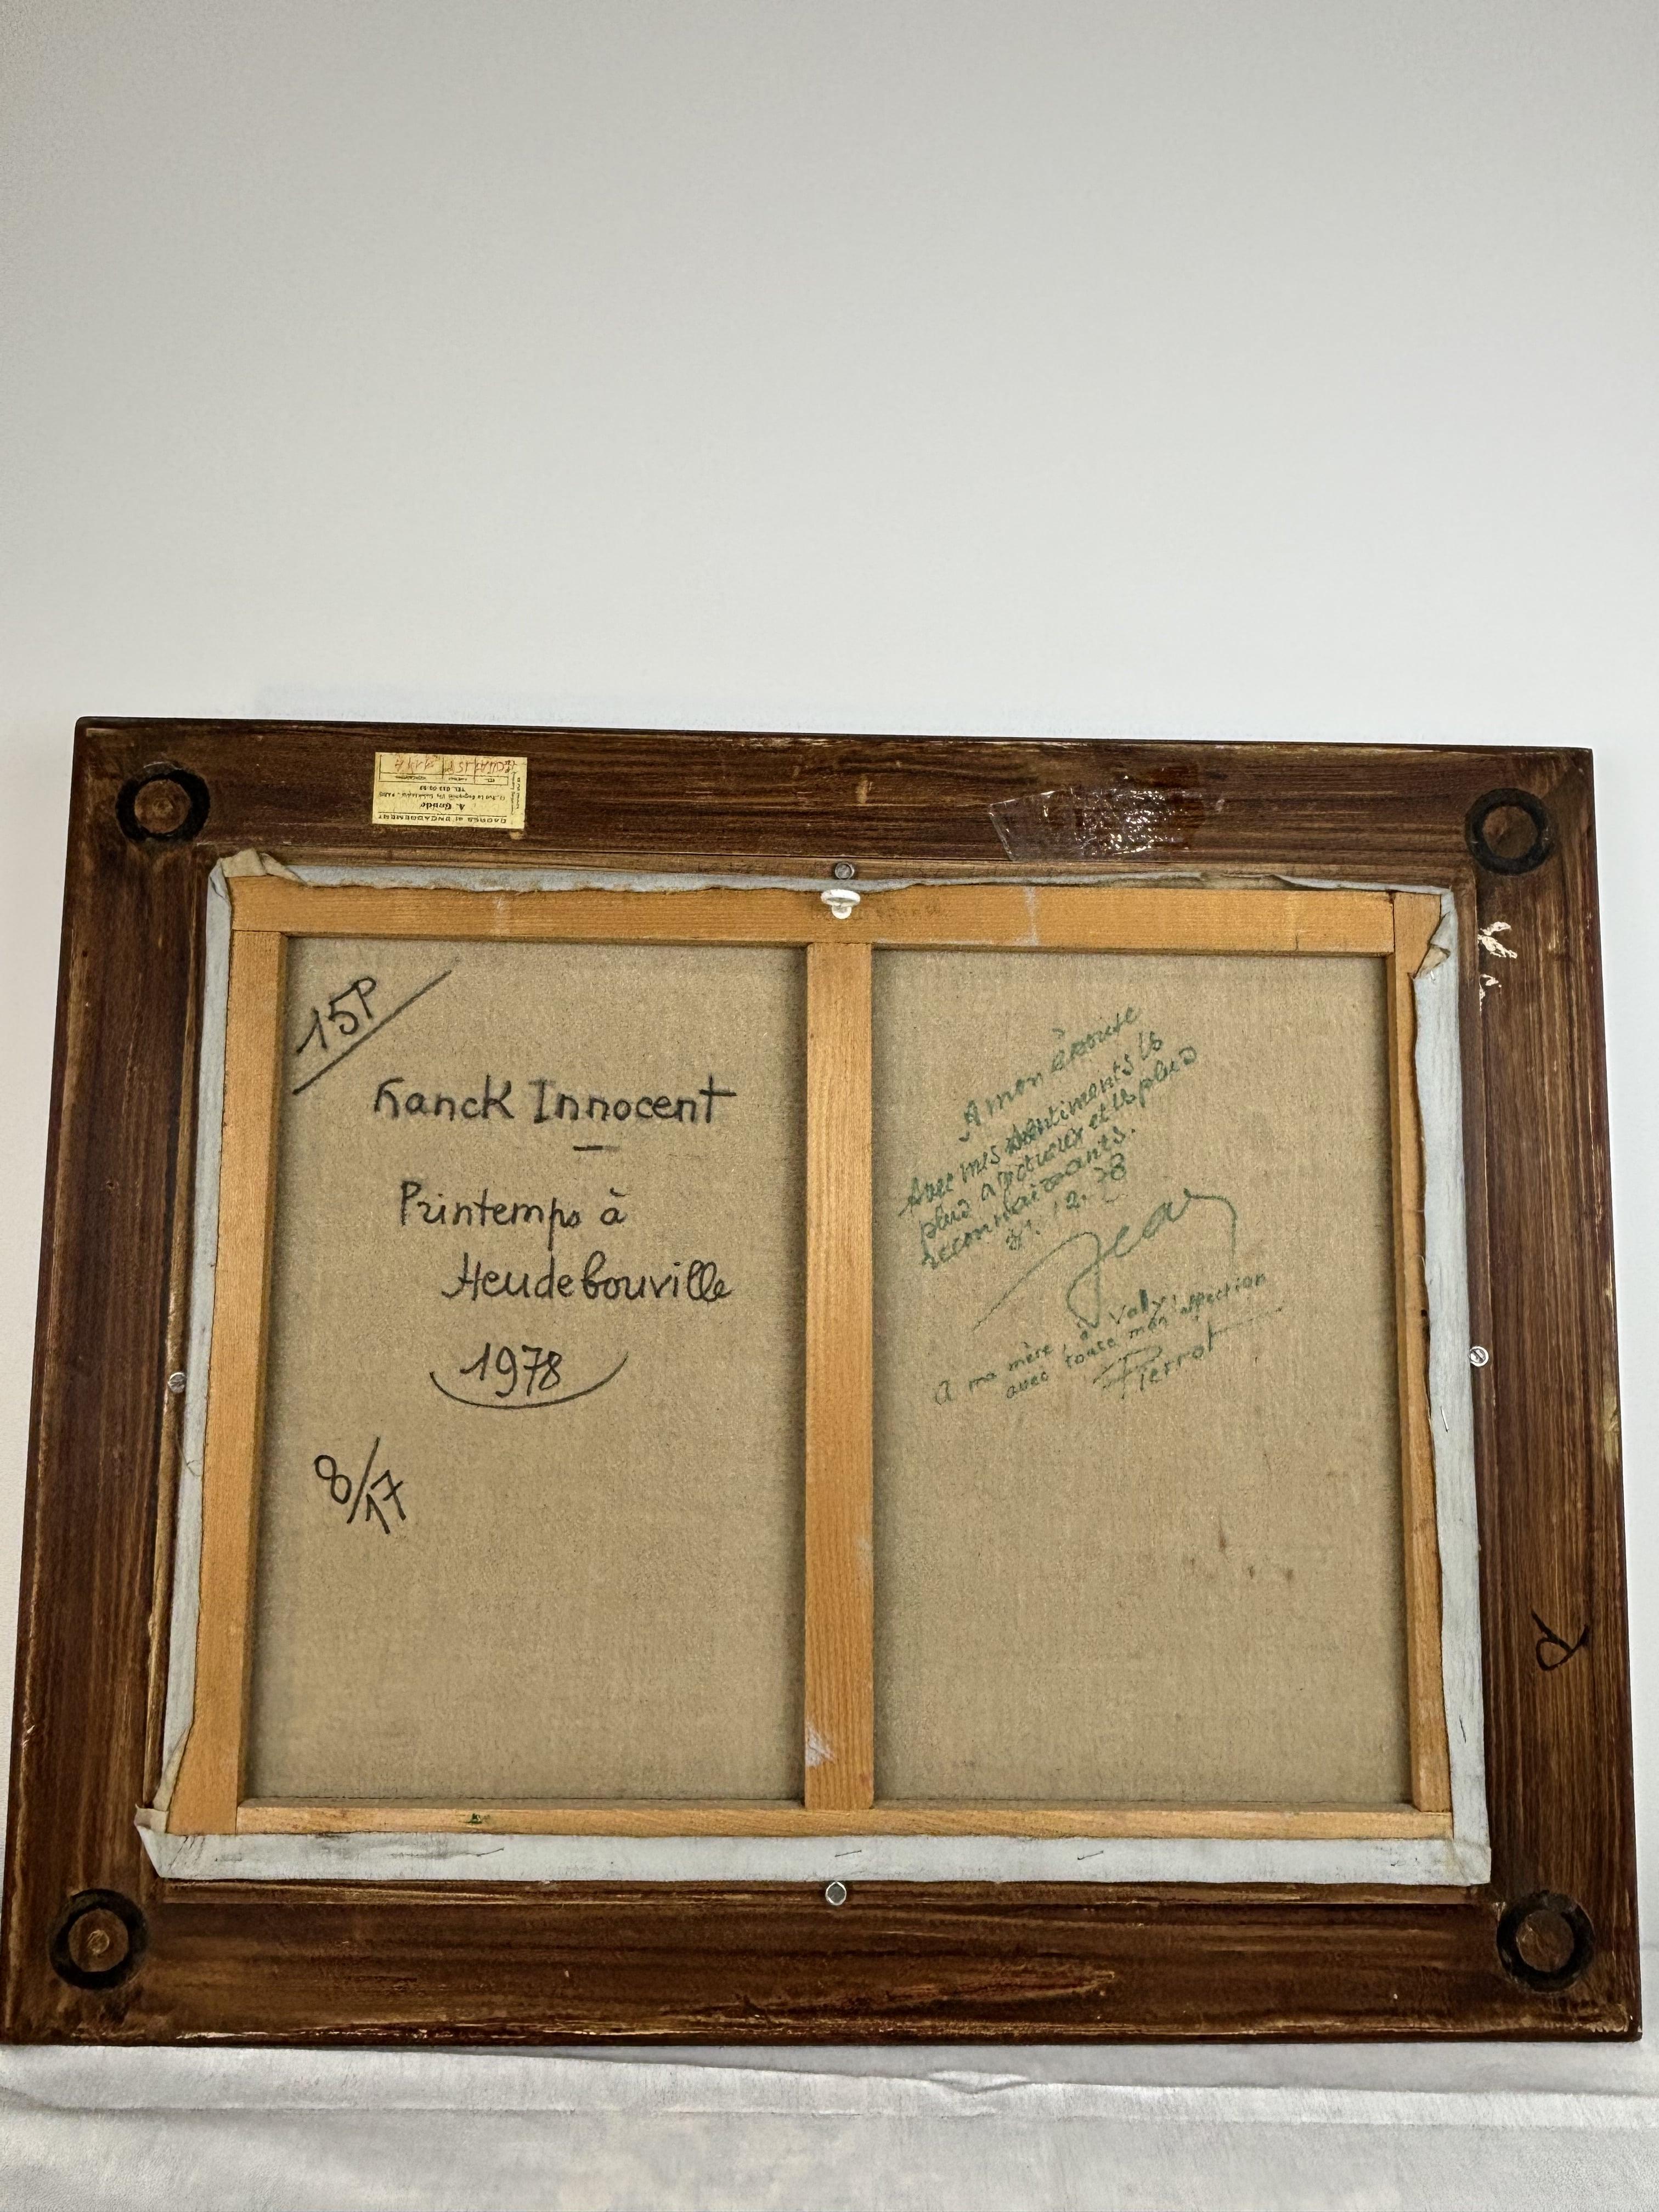 CADRES et ENCADREMENT
A. Grude
TEL. 033 03 23
15P
Franck Innocent
Printemps à
Heudebouville
1978
8/17
A mon épouse
Avec mes sentiments les
plus affectueux et les plus
reconnaissants.
31.12.78
Jean
A ma mère, à Valy,
avec toute mon affection
Pierrot